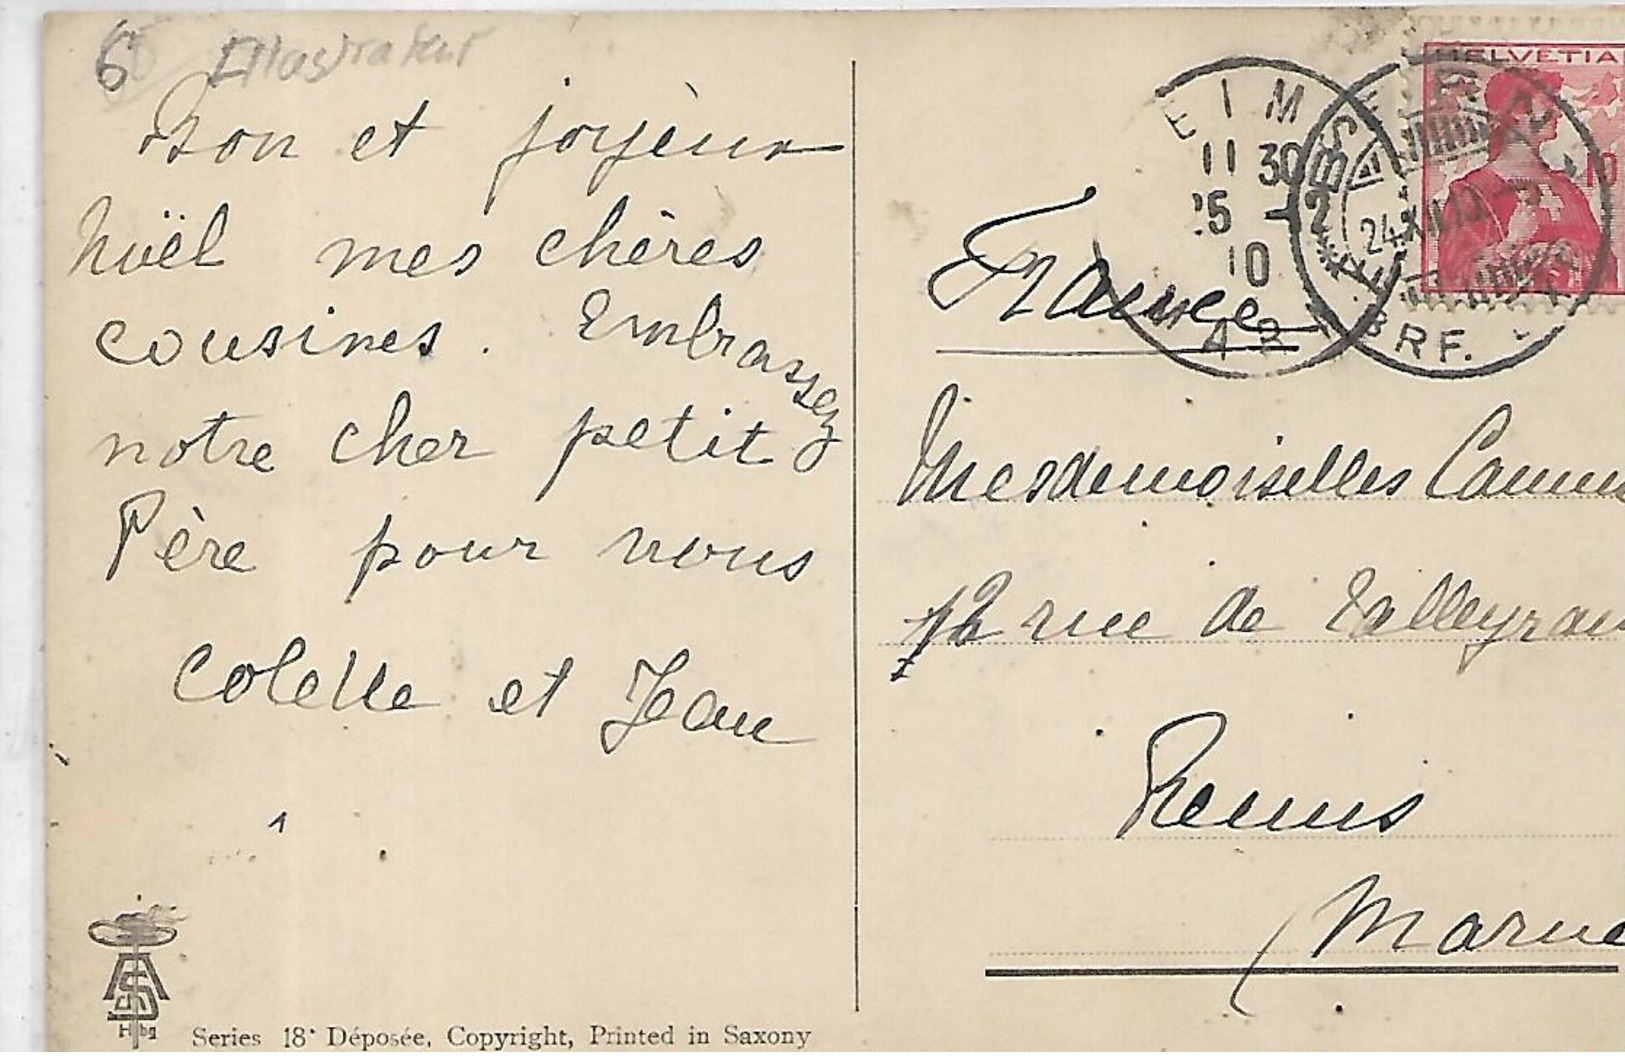 6 Illustrateur
Bon et joyeux
Noël mes chères
cousines. Embrassez
notre cher petit
Père pour nous
Colette et Jean
1
Hbg
Series 18· Déposée, Copyright, Printed in Saxony
HELVETIA
10
EIMS
11 30
25 - 12
10
MAR
24.XII.10
BRF.
France
Mesdemoiselles
12 rue de Talleyran
Reims
(Marne